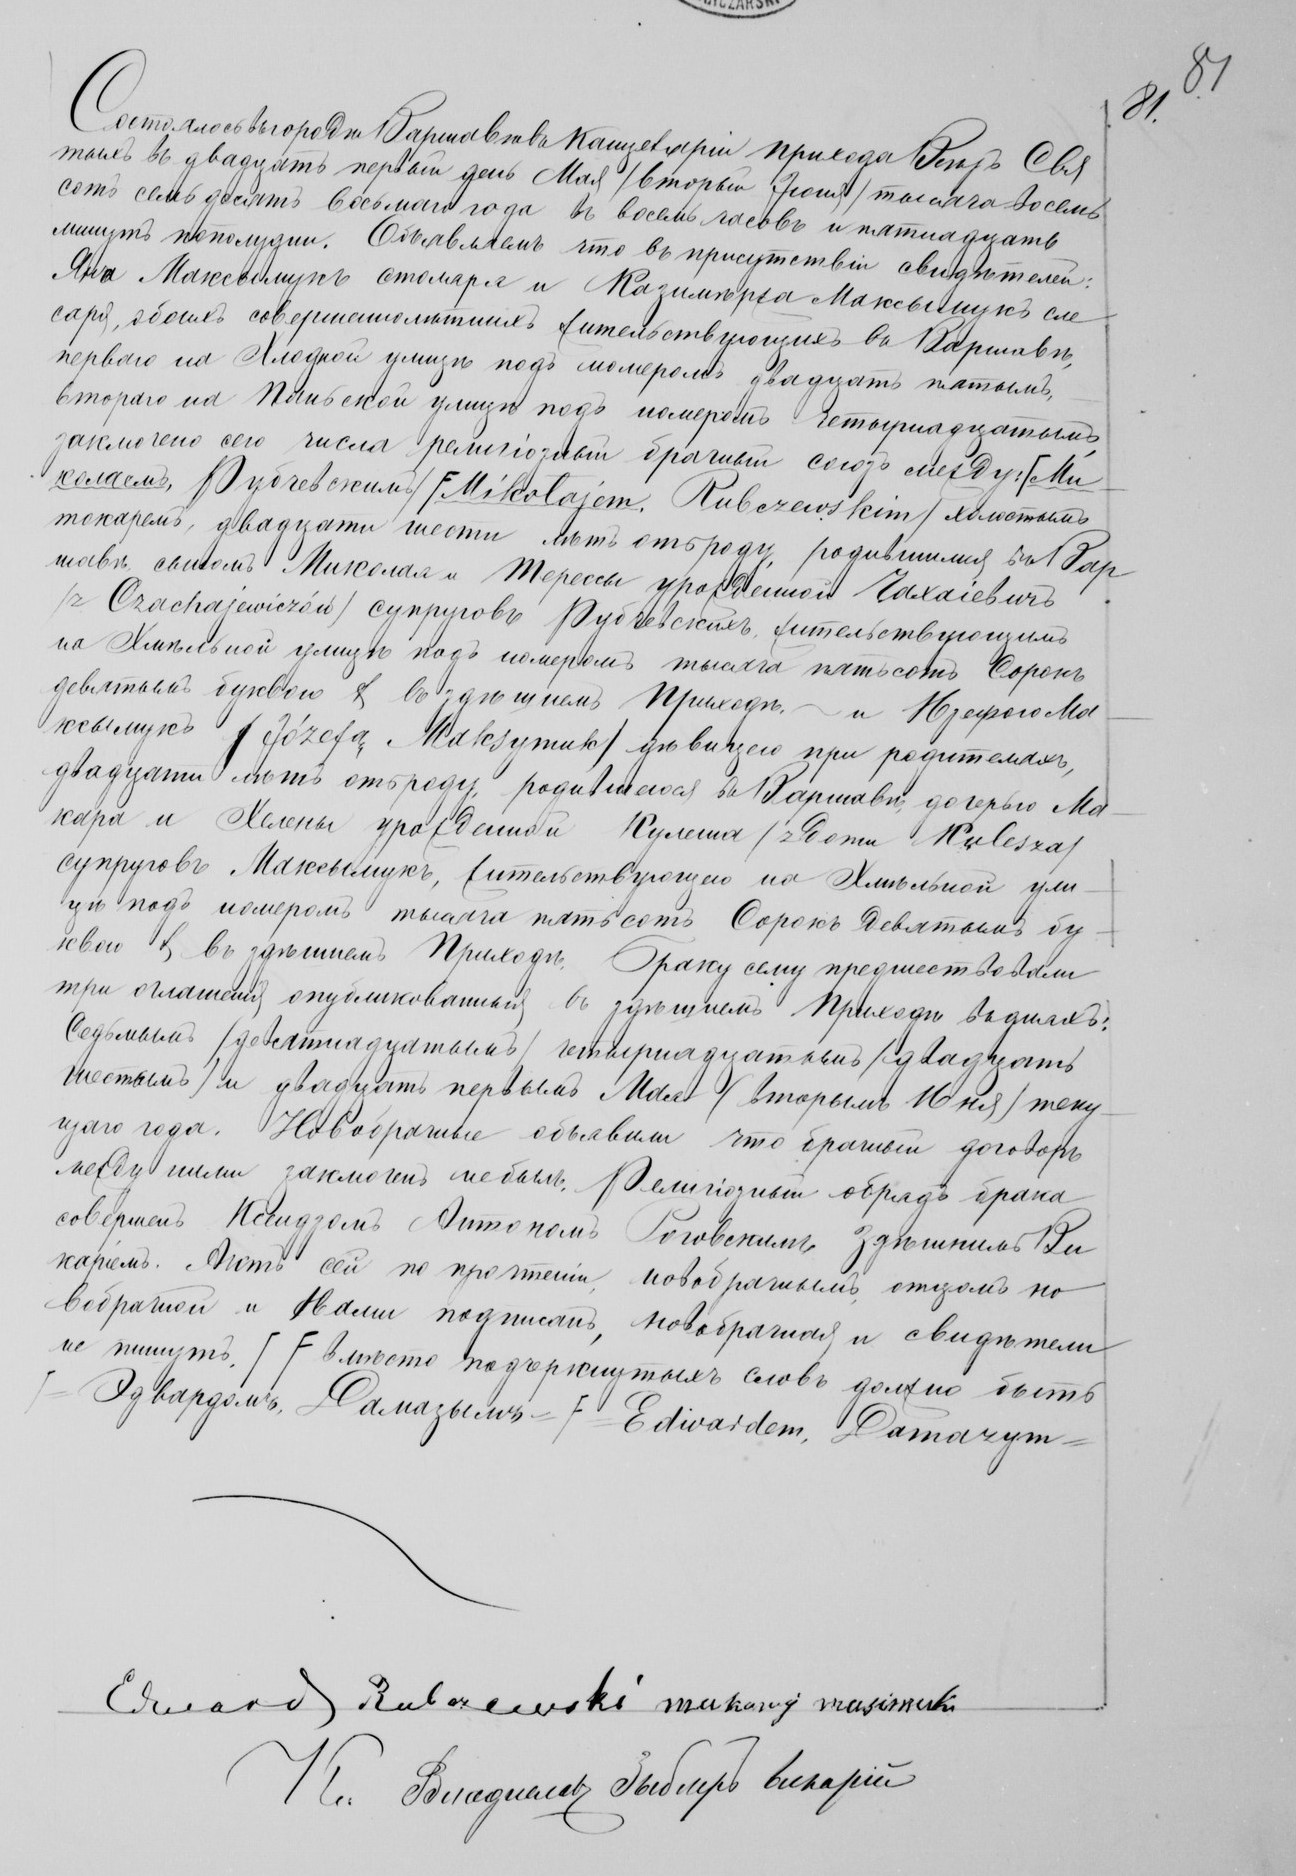 81.
81
Состоялось въ городѣ Варшавѣ въ Канцеляріи прихода Всѣхъ Свя
тыхъ въ двадцать первый день Мая /вторый Іюня/ тысяча восемь
сотъ семьдесятъ восьмаго года въ восемь часовъ и пятнадцать
минутъ пополудни. Объявляемъ что въ присутствіи свидѣтелей:
Яна Максымукъ столяра и Казимѣржа Максымукъ сле
саря, обоихъ совершеннолѣтнихъ жительствующихъ въ Варшавѣ,
перваго на Хлодной улицѣ подъ номеромъ двадцать пятымъ,
втораго на улицѣ подъ номеромъ четырнадцатымъ,
заключено сего числа религіозный брачный союзъ между: /Ми
колаемъ, Рубчевскимъ/ /Mikołajem, Rubczewskim/ холостымъ
токаремъ, двадцати шести лѣтъ отъ роду, родившимся въ Вар
шавѣ сыномъ Миколая и Терессы урожденной Чахаіевичъ
/z Czachajewiczów/ супруговъ Рубчевскихъ, жительствующимъ
на Хмѣльной улицѣ подъ номеромъ тысяча пятьсотъ Сорокъ
девятымъ буквою въ здѣшнемъ Приходѣ. — и Юзефою Ма
ксымукъ /Józefą Maksymuk/ дѣвицею при родителяхъ,
двадцати лѣтъ отъ роду, родившеюся въ Варшавѣ, дочерью Ма
кара и Хелены урожденной Кулеша /z Domu Kulesza/
супруговъ Максымукъ, жительствующею на Хмѣльной ули
цѣ подъ номеромъ тысяча пятьсотъ Сорокъ девятымъ бу
квою въ здѣшнемъ Приходѣ. Браку сему предшествовали
три оглашенія опубликованныя въ здѣшнемъ Приходѣ въ дняхъ:
Седьмымъ /девятнадцатымъ/ четырнадцатымъ /двадцать
шестымъ/ и двадцать первымъ Мая /вторымъ Юня/ теку
щаго года. Новобрачные объявили что брачный договоръ
между ними заключенъ не былъ. Религіозный обрядъ брака
совершенъ Ксендзомъ Антономъ Роговскимъ Здѣшнимъ Ви
каріемъ. Актъ сей по прочтеніи, новобрачнымъ, отцомъ но
вобрачной и Нами подписанъ, новобрачная и свидѣтели
не пишутъ. / вмѣсто подчеркнутыхъ словъ должно быть
= Эдвардомъ, Дамазымъ = = Edwardem, Damazym =
Edward Rubczewski makary masimuk
Кс. Зыблеръ викарій